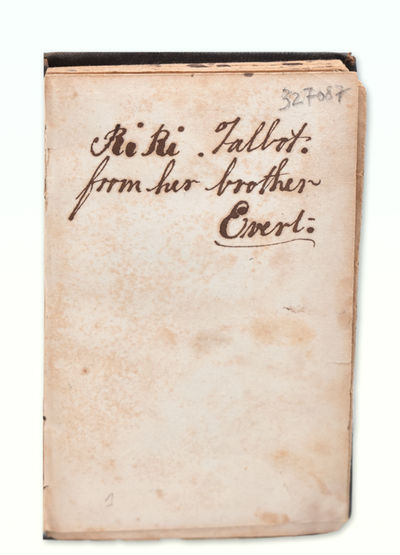 327087
KiKi . Talbot:
from her brother
Evert:
1